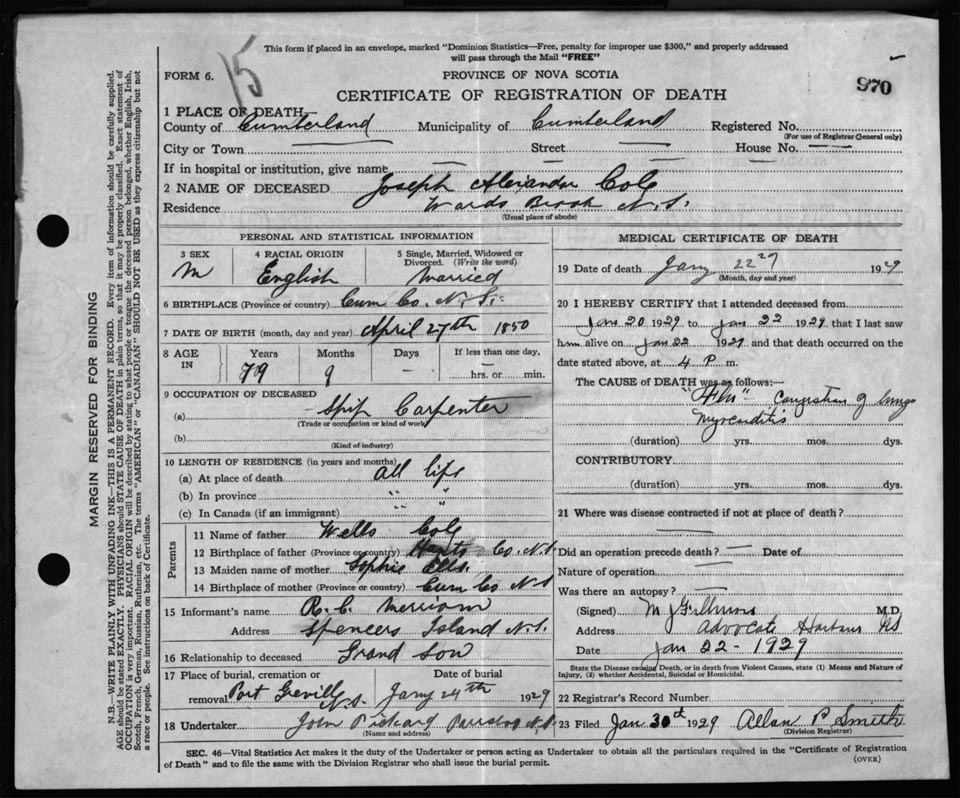 This form if placed in an envelope, marked "Dominion Statistics—Free, penalty for improper use $300," and properly addressed
will pass through the Mail "FREE"
15
FORM 6.
PROVINCE OF NOVA SCOTIA
970
CERTIFICATE OF REGISTRATION OF DEATH
1 PLACE OF DEATH
County of Cumberland Municipality of Cumberland Registered No.
(For use of Registrar General only)
City or Town Street House No.
If in hospital or institution, give name
2 NAME OF DECEASED Joseph Alexander Cole
Residence Wards Brook N.S.
(Usual place of abode)
PERSONAL AND STATISTICAL INFORMATION
3 SEX 4 RACIAL ORIGIN 5 Single, Married, Widowed or Divorced. (Write the word)
M English Married
6 BIRTHPLACE (Province or country) Cum Co. N.S.
7 DATE OF BIRTH (month, day and year) April 27th 1850
8 AGE IN Years Months Days If less than one day,
79 9 - hrs. or min.
9 OCCUPATION OF DECEASED
(a) Ship Carpenter
(Trade or occupation or kind of work)
(b)
(Kind of industry)
10 LENGTH OF RESIDENCE (in years and months)
(a) At place of death all life
(b) In province " "
(c) In Canada (if an immigrant) " "
Parents
11 Name of father Wells Cole
12 Birthplace of father (Province or country) Hants Co. N.S
13 Maiden name of mother Sophie Ells
14 Birthplace of mother (Province or country) Cum Co N S
15 Informant's name R. C. Merriam
Address Spencers Island N.S.
16 Relationship to deceased Grand Son
17 Place of burial, cremation or removal Date of burial
Port Greville N.S. Jany 24th 1929
18 Undertaker John Pickard Parrsboro N.S
(Name and address)
MEDICAL CERTIFICATE OF DEATH
19 Date of death Jany 22 1929
(Month, day and year)
20 I HEREBY CERTIFY that I attended deceased from
Jan 20 1929 to Jan 22 1929 that I last saw
him alive on Jan 22 1929 and that death occurred on the
date stated above, at 4 P m.
The CAUSE OF DEATH was as follows:—
"Flu" - Congestion of lungs
Myocarditis
(duration) yrs. mos. dys.
CONTRIBUTORY
(duration) yrs. mos. dys.
21 Where was disease contracted if not at place of death?
Did an operation precede death? — Date of
Nature of operation
Was there an autopsy?
(Signed) M.D.
Address Advocate Harbour NS
Date Jan 22 - 1929
State the Disease causing Death, or in death from Violent Causes, state (1) Means and Nature of
Injury, (2) whether Accidental, Suicidal or Homicidal.
22 Registrar's Record Number
23 Filed Jan 30th 1929 Allan P Smith
(Division Registrar)
SEC. 46—Vital Statistics Act makes it the duty of the Undertaker or person acting as Undertaker to obtain all the particulars required in the "Certificate of Registration
of Death" and to file the same with the Division Registrar who shall issue the burial permit.
(OVER)
MARGIN RESERVED FOR BINDING
N.B.—WRITE PLAINLY WITH UNFADING INK—THIS IS A PERMANENT RECORD. Every item of information should be carefully supplied.
AGE should be stated EXACTLY. PHYSICIANS should STATE CAUSE OF DEATH in plain terms, so that it may be properly classified. Exact statement of
OCCUPATION is very important. RACIAL ORIGIN will be described by stating to what people or tongue the deceased person belonged, whether English, Irish,
Scotch, French, German, Russian, Ruthenian, etc. The terms "AMERICAN" or "CANADIAN" SHOULD NOT BE USED as they express citizenship but not
a race or people. See instructions on back of Certificate.